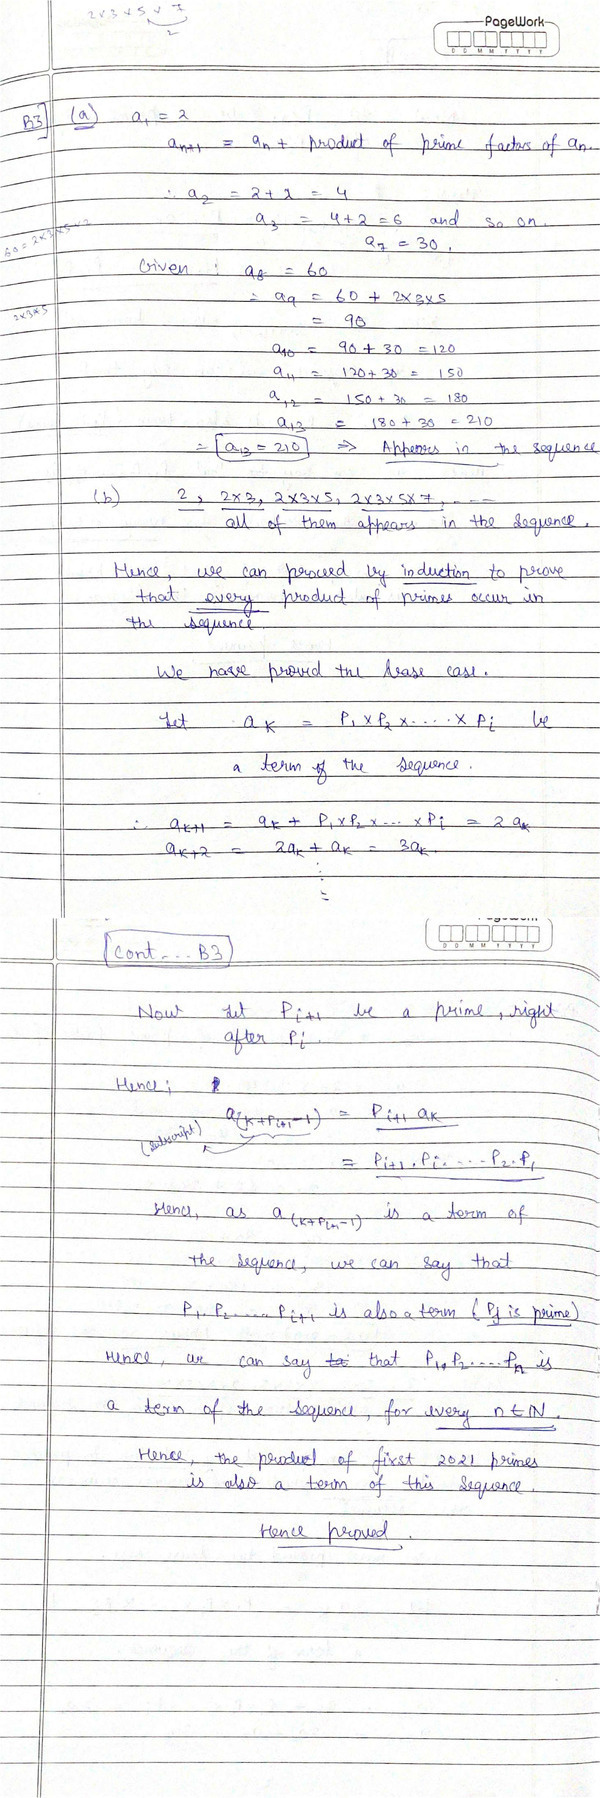 2×3×5×7
2
PageWork
D D M M Y Y Y Y
B3] (a) a₁ = 2
aₙ₊₁ = aₙ + product of prime factors of aₙ.
∴ a₂ = 2+2 = 4
a₃ = 4+2 = 6 and so on.
a₇ = 30.
60 = 2×3×5×2
Given : a₈ = 60
∴ a₉ = 60 + 2×3×5
2×3×5
= 90
a₁₀ = 90 + 30 = 120
a₁₁ = 120 + 30 = 150
a₁₂ = 150 + 30 = 180
a₁₃ = 180 + 30 = 210
= a₁₃ = 210 ⇒ Appears in the sequence
(b) 2, 2×3, 2×3×5, 2×3×5×7, ----
all of them appears in the sequence.
Hence, we can proceed by induction to prove
that every product of primes occur in
the sequence.
We have proved the base case.
Let aₖ = P₁ × P₂ × ..... × Pᵢ be
a term of the sequence.
∴ aₖ₊₁ = aₖ + P₁×P₂×...×Pᵢ = 2aₖ
aₖ₊₂ = 2aₖ + aₖ = 3aₖ.
⋮
=
PageWork
cont.... B3
D D M M Y Y Y Y
Now let Pᵢ₊₁ be a prime, right
after Pᵢ.
Hence;
a(K+Pᵢ₊₁-1) = Pᵢ₊₁ aₖ
(subscript)
= Pᵢ₊₁.Pᵢ.....P₂.P₁
Hence, as a(K+Pᵢ₊₁-1) is a term of
the sequence, we can say that
P₁.P₂.....Pᵢ₊₁ is also a term (Pj is prime)
Hence, we can say that P₁.P₂....Pₙ is
a term of the sequence, for every n∈N.
Hence, the product of first 2021 primes
is also a term of this sequence.
Hence proved.